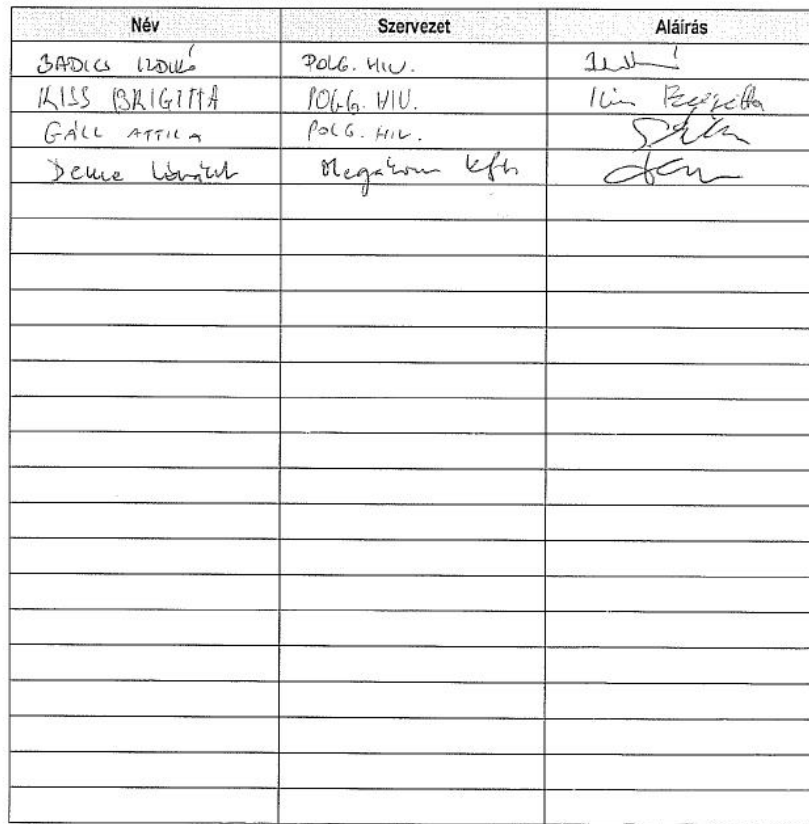 Név Szervezet Aláírás
BADICS ILDIKÓ POLG. HIV.
KISS BRIGITTA POLG. HIV. Kiss Brigitta
GÁLL ATTILA POLG. HIV.
Deme Kft